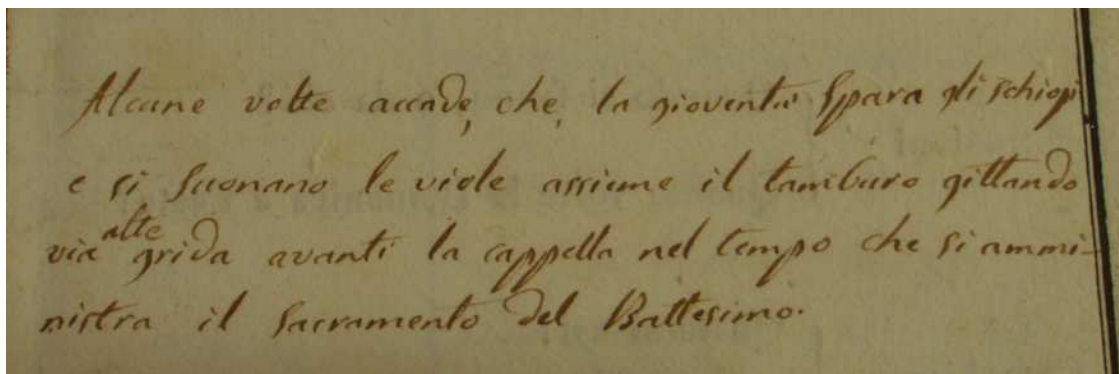 Alcune volte accade, che, la gioventù spara gli schiopi
e si suonano le viole assieme il tamburo gittando
via alte grida avanti la cappella nel tempo che si ammi-
nistra il Sacramento del Battesimo.